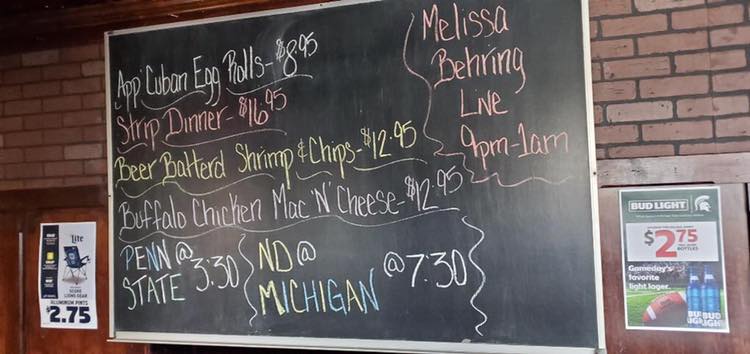 App' Cuban Egg Rolls - $8.95
Strip Dinner - $16.95
Beer Batterd Shrimp & Chips - $12.95
Buffalo Chicken Mac 'N' Cheese - $12.95
PENN @ 3:30
STATE
ND @
MICHIGAN @ 7:30
Melissa
Behring
Live
9pm-1am
Lite
SCORE
LIONS GEAR
ALUMINUM PINTS
$2.75
BUD LIGHT
$2.75
BOTTLES
Gameday's
favorite
light lager.
BUD
LIGHT
BUD
LIGHT